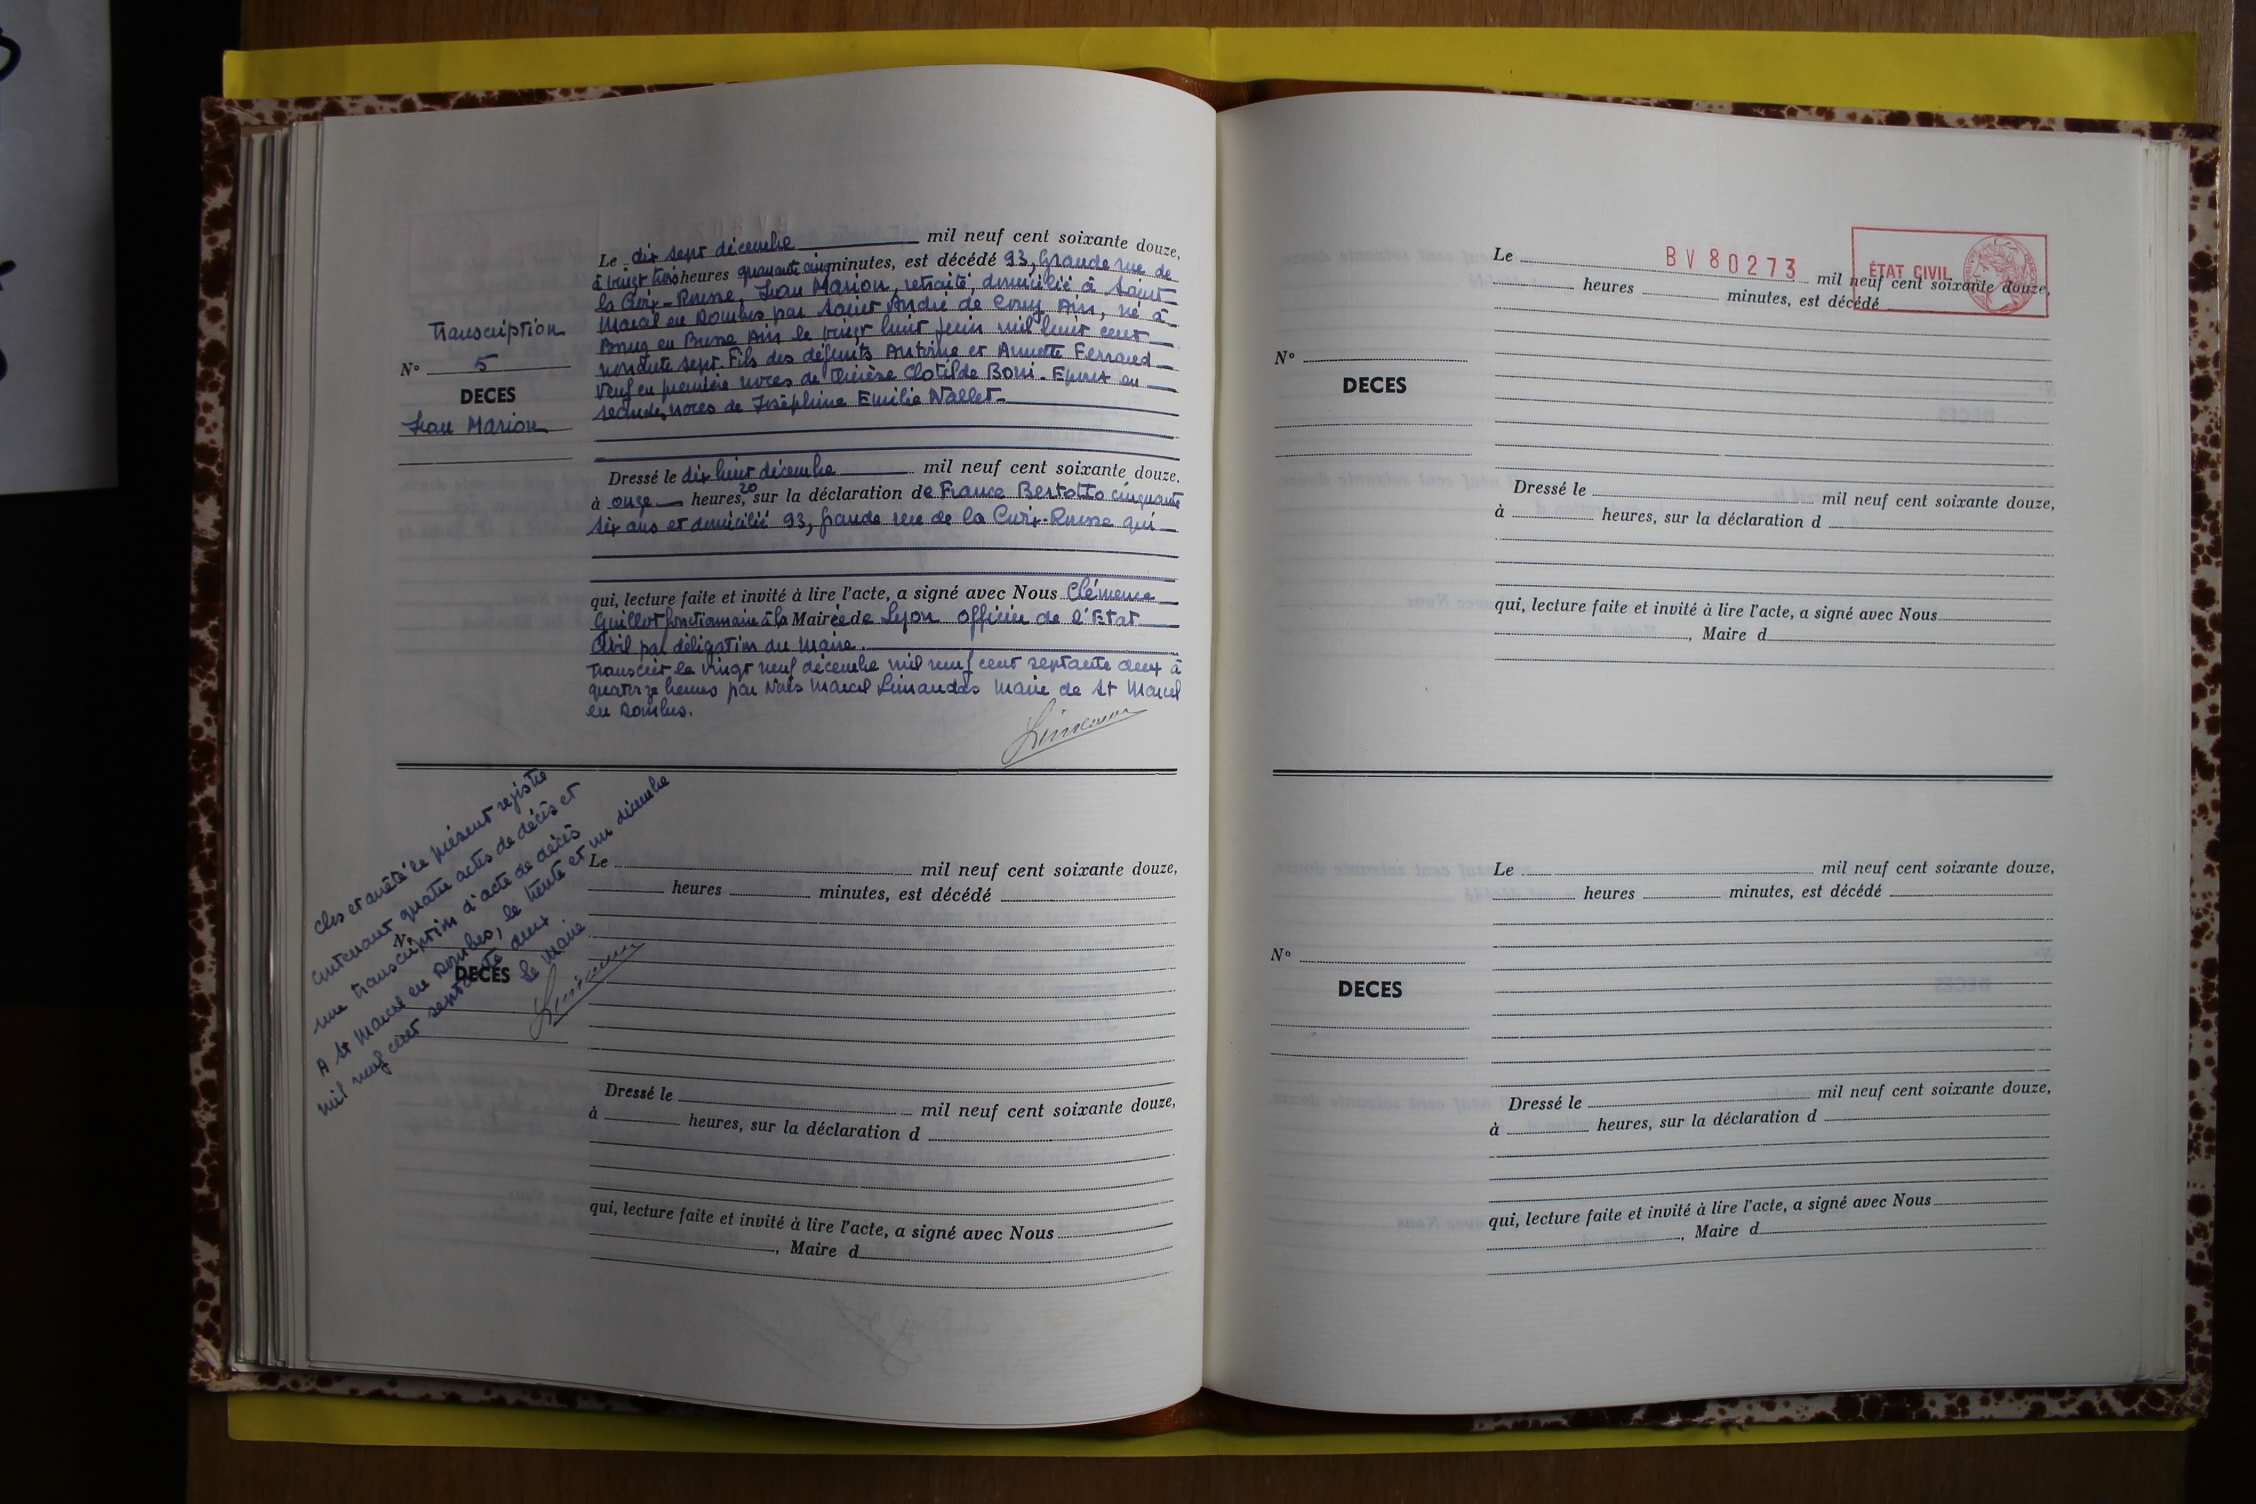 Transcription
Nº 5
DECES
Jean Marion
Le dix sept décembre mil neuf cent soixante douze,
à vingt trois heures quarante cinq minutes, est décédé 93, Grande rue de
la Croix-Rousse, Jean Marion, retraité, domicilié à Saint
Marcel en Dombes par Saint André de Corcy Ain, né à
Bourg en Bresse Ain le vingt huit juin mil huit cent
nonante sept. Fils des défunts Antoine et Annette Ferraud
Veuf en première noces de Thérèse Clotilde Boni - Epoux en
secondes noces de Joséphine Emilie Vallet
Dressé le dix huit décembre mil neuf cent soixante douze.
à onze heures, 20 sur la déclaration de France Bertotto cinquante
six ans et domicilié 93, grande rue de la Croix-Rousse qui
qui, lecture faite et invité à lire l'acte, a signé avec Nous Clémence
Guillot fonctionnaire à la Mairie de Lyon Officier de l'Etat
Civil par délégation du Maire.
Transcrit le vingt neuf décembre mil neuf cent septante deux à
quatorze heures par Nous Marcel Limandas Maire de St Marcel
en Dombes.
Clos et arrêté le présent registre
contenant quatre actes de décès et
une transcription d'acte de décès
A St Marcel en Dombes, le trente et un décembre
mil neuf cent septante deux
Le Maire
Nº
DECES
Le mil neuf cent soixante douze,
heures minutes, est décédé
Dressé le mil neuf cent soixante douze,
à heures, sur la déclaration d
qui, lecture faite et invité à lire l'acte, a signé avec Nous
, Maire d
BV 80273
ÉTAT CIVIL
Le mil neuf cent soixante douze,
heures minutes, est décédé
Nº
DECES
Dressé le mil neuf cent soixante douze,
à heures, sur la déclaration d
qui, lecture faite et invité à lire l'acte, a signé avec Nous
, Maire d
Le mil neuf cent soixante douze,
heures minutes, est décédé
Nº
DECES
Dressé le mil neuf cent soixante douze,
à heures, sur la déclaration d
qui, lecture faite et invité à lire l'acte, a signé avec Nous
, Maire d